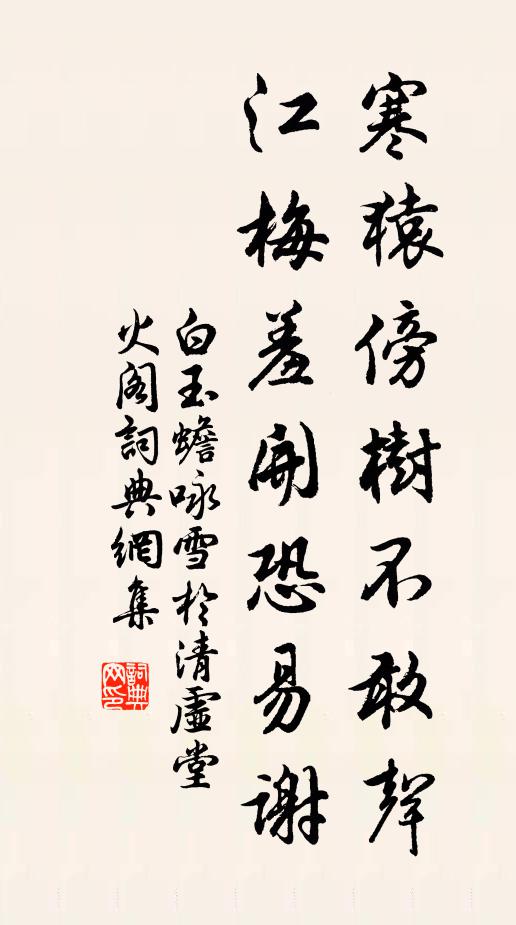 寒猿傍樹不敢聲
江梅羞開恐易謝
白玉蟾咏雪於清虛堂
火閣詞典網集
詞典
网印